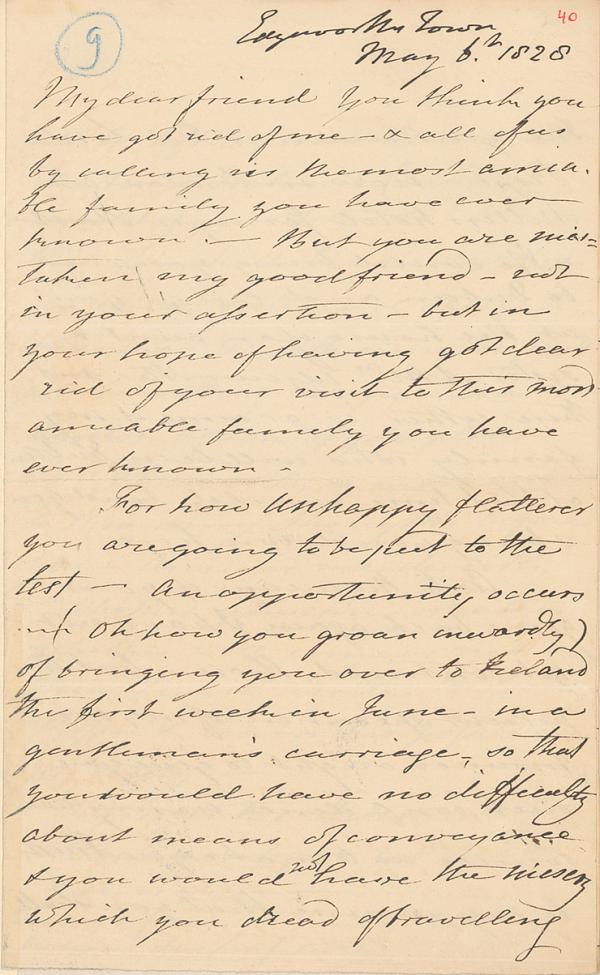 9
40
Edgeworths Town
May 6.th 1828
My dear friend You think you
have got rid of me – & all of us
by calling us the most amia-
ble family you have ever
known. — But you are mis=
taken my good friend – not
in your assertion – but in
your hope of having got clear
rid of your visit to this most
amiable family you have
ever known –
For now unhappy flatterer
you are going to be put to the
test — An opportunity occurs
( Oh how you groan inwardly )
of bringing you over to Ireland
the first week in June – in a
gentleman's carriage, so that
you would have no difficulty
about means of conveyance
& you would not have the misery
which you dread of travelling